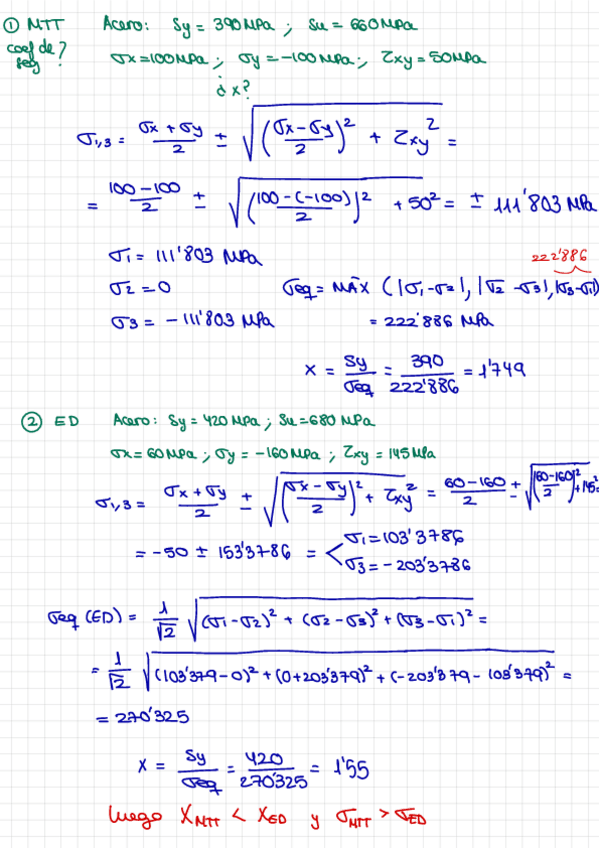 ① MTT Acero: Sy = 390 MPa ; Su = 660 MPa
coef de seg? σx = 100 MPa ; σy = -100 MPa ; τxy = 50 MPa
¿x?
σ1,3 = (σx + σy)/2 ± √(((σx - σy)/2)² + τxy²) =
= (100 - 100)/2 ± √(((100 - (-100))/2)² + 50²) = ± 111'803 MPa
σ1 = 111'803 MPa
222'886
σ2 = 0 σeq = MÁX (|σ1-σ2|, |σ2-σ3|, |σ3-σ1|)
σ3 = -111'803 MPa = 222'886 MPa
X = Sy/σeq = 390/222'886 = 1'749
② ED Acero: Sy = 420 MPa ; Su = 680 MPa
σx = 60 MPa ; σy = -160 MPa ; τxy = 145 MPa
σ1,3 = (σx + σy)/2 ± √(((σx - σy)/2)² + τxy²) = (60 - 160)/2 ± √(((60-160)/2)² + 145²
= -50 ± 153'3786 = < σ1 = 103'3786
σ3 = -203'3786
σeq (ED) = 1/√2 √((σ1-σ2)² + (σ2-σ3)² + (σ3-σ1)²) =
= 1/√2 √((103'379-0)² + (0+203'379)² + (-203'379 - 103'379)²) =
= 270'325
X = Sy/σeq = 420/270'325 = 1'55
luego XMTT < XED y σMTT > σED